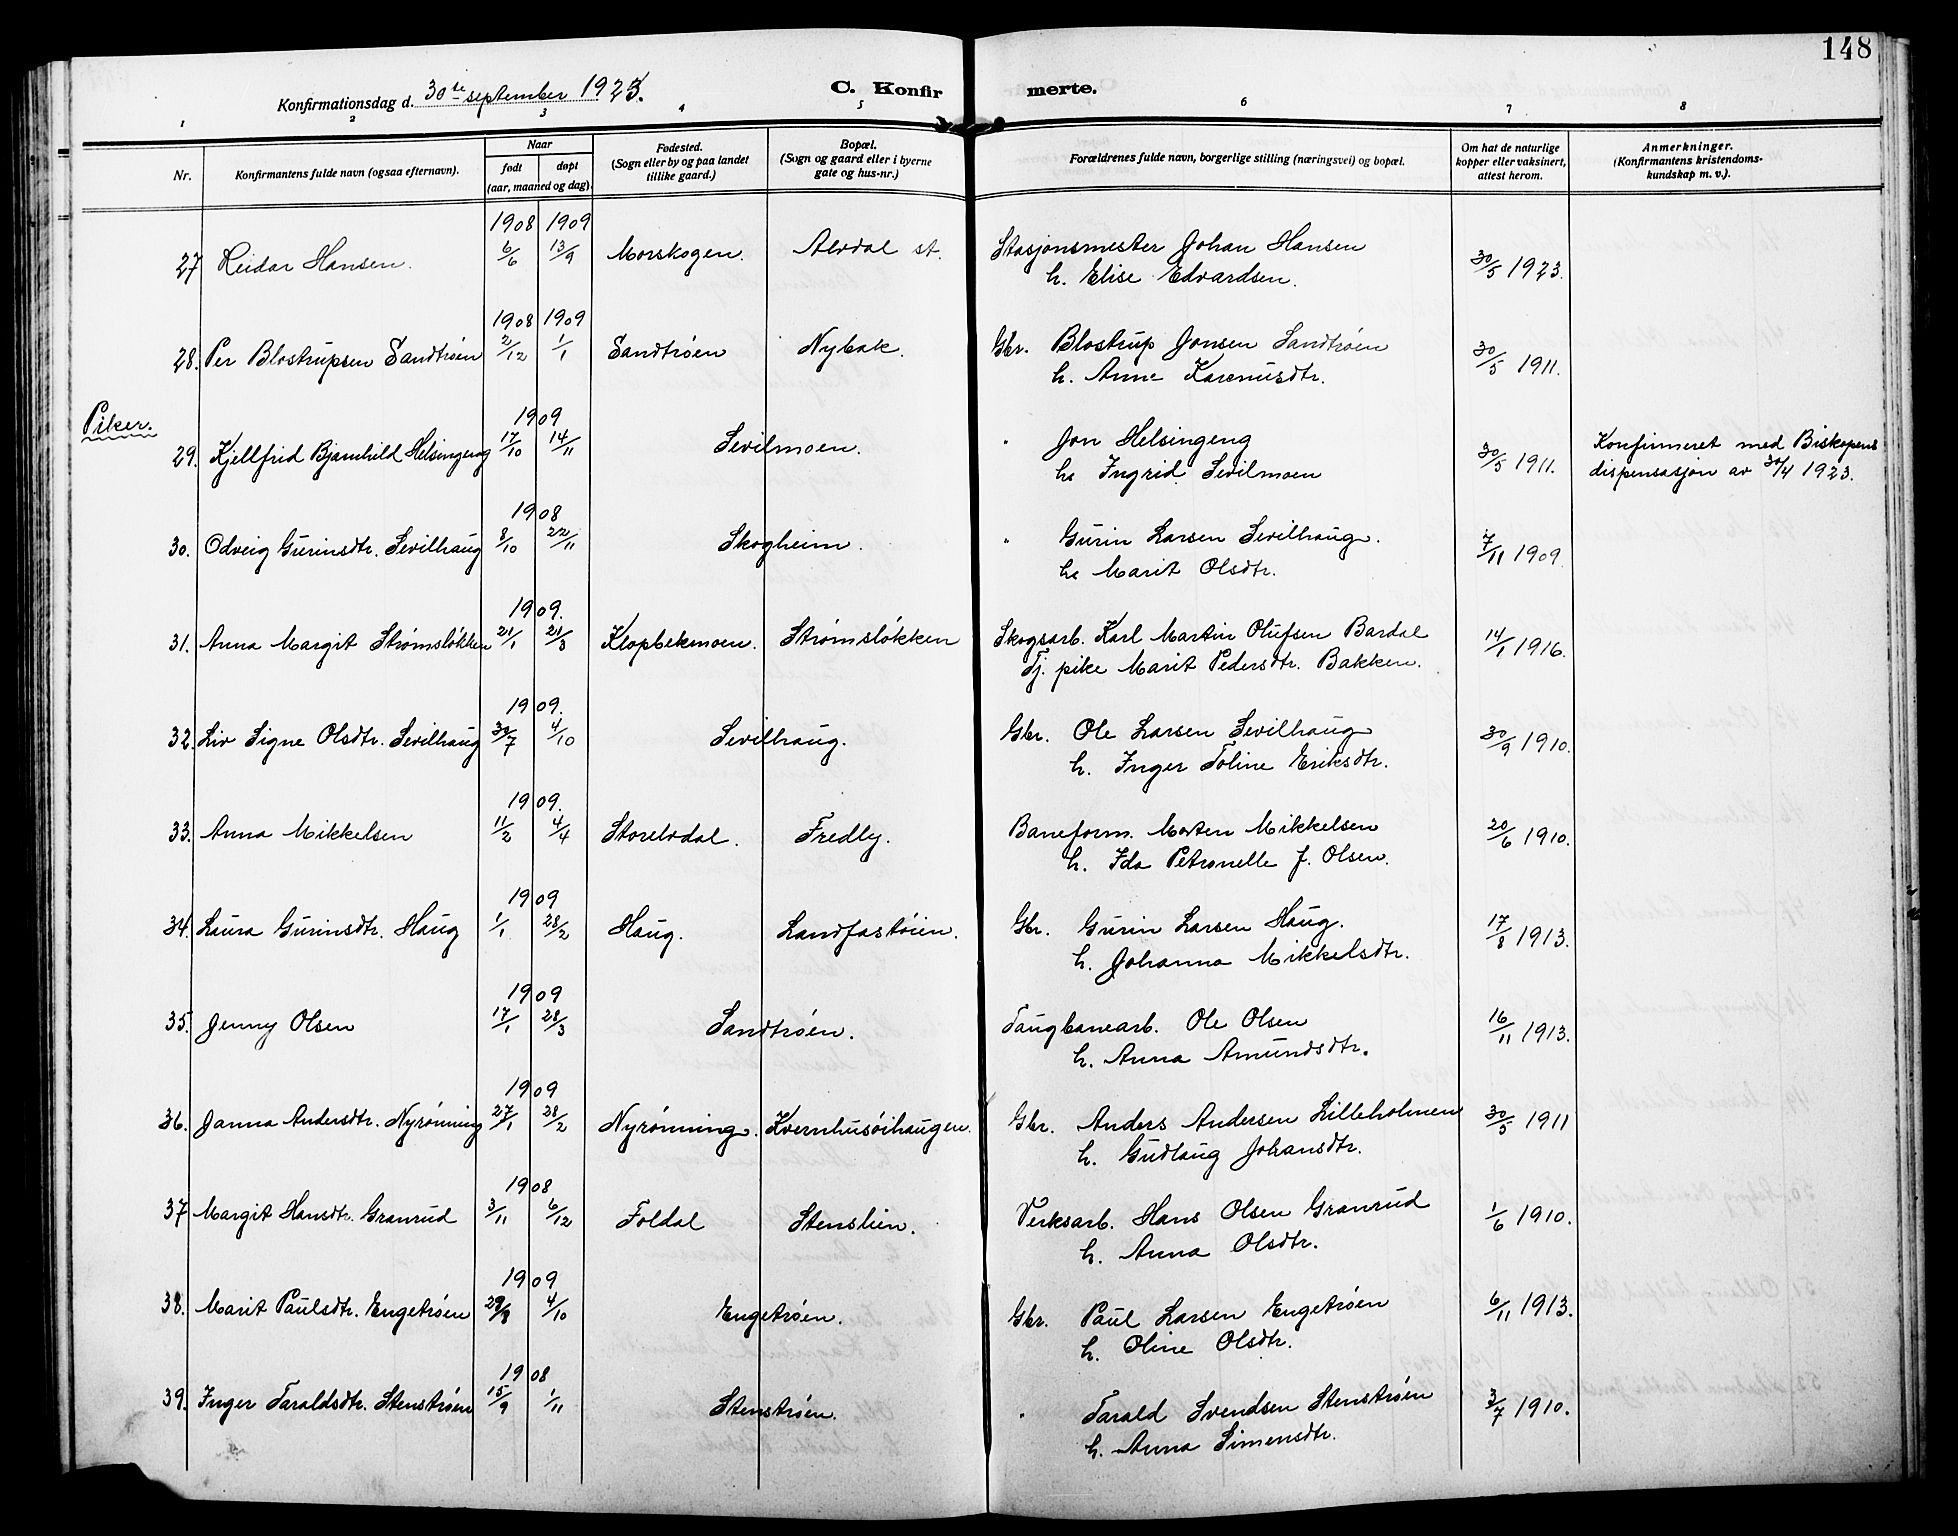 148
Konfirmationsdag d. 30te september 1923.
C. Konfirmerte.
1 2 3 4 5 6 7 8
Nr.
Konfirmantens fulde navn (ogsaa efternavn).
Naar
født døpt
(aar, maaned og dag)
Fødested.
(Sogn eller by og paa landet
tillike gaard.)
Bopæl.
(Sogn og gaard eller i byerne
gate og hus-nr.)
Forældrenes fulde navn, borgerlige stilling (næringsvei) og bopæl.
Om hat de naturlige
kopper eller vaksinert,
attest herom.
Anmerkninger.
(Konfirmantens kristendoms-
kundskap m. v.).
1908 1909
27 Reidar Hansen. 6/6 13/9 Morskogen. Alvdal st. Stasjonsmester Johan Hansen 30/5 1923.
h. Elise Edvardsen.
1908 1909
28. Per Blostrupsen Sandtrøen 2/12 1/1 Sandtrøen Nybak. Gbr. Blostrup Jonsen Sandtrøen 30/5 1911.
h. Anne Karenusdtr.
Piker.
1909
29. Kjellfrid Bjarnhild Helsingeng 17/10 14/11 Sevilmoen. " Jon Helsingeng 30/5 1911. Konfirmeret med Biskopens
h. Ingrid Sevilmoen dispensasjon av 30/4 1923.
1908
30. Odveig Gurinsdtr. Sevilhaug 8/10 22/11 Skogheim. " Gurin Larsen Sevilhaug. 7/11 1909.
h. Marit Olsdtr.
1909.
31. Anna Margit Strømsløkken 21/1 21/3 Klopbekmoen. Strømsløkken Skogsarb. Karl Martin Olufsen Bardal 14/1 1916.
Tj. pike Marit Pedersdtr. Bakken.
1909.
32. Liv Signe Olsdtr. Sevilhaug 30/7 4/10 Sevilhaug. Gbr. Ole Larsen Sevilhaug 30/9 1910.
h. Inger Toline Eriksdtr.
1909.
33. Anna Mikkelsen 11/2 4/4 Storelvdal. Fredly. Baneform. Morten Mikkelsen 20/6 1910.
h. Ida Petronelle J. Olsen.
1909
34. Laura Gurinsdtr. Haug 1/1 28/2 Haug. Landfastøien. Gbr. Gurin Larsen Haug. 17/8 1913.
h. Johanna Mikkelsdtr.
1909
35. Jenny Olsen 17/1 28/3 Sandtrøen. Taugbanearb. Ole Olsen 16/11 1913.
h. Anna Amundsdtr.
1909
36. Janna Andersdtr. Nyrønning 27/1 28/2 Nyrønning. Kvernhusøihaugen. Gbr. Anders Andersen Lilleholmen 30/5 1911
h. Gudlaug Johansdtr.
1908
37 Margit Hansdtr. Granrud 3/11 6/12 Foldal Stenslien. Verksarb. Hans Olsen Granrud 1/6 1910.
h. Anna Olsdtr.
1909
38. Marit Paulsdtr. Engetrøen 29/8 4/10 Engetrøen. Gbr. Paul Larsen Engetrøen 6/11 1913.
h. Oline Olsdtr.
1908
39. Inger Taraldsdtr. Stenstrøen 15/9 1/11 Stenstrøen. " Tarald Svendsen Stenstrøen 3/7 1910.
h. Anna Simensdtr.